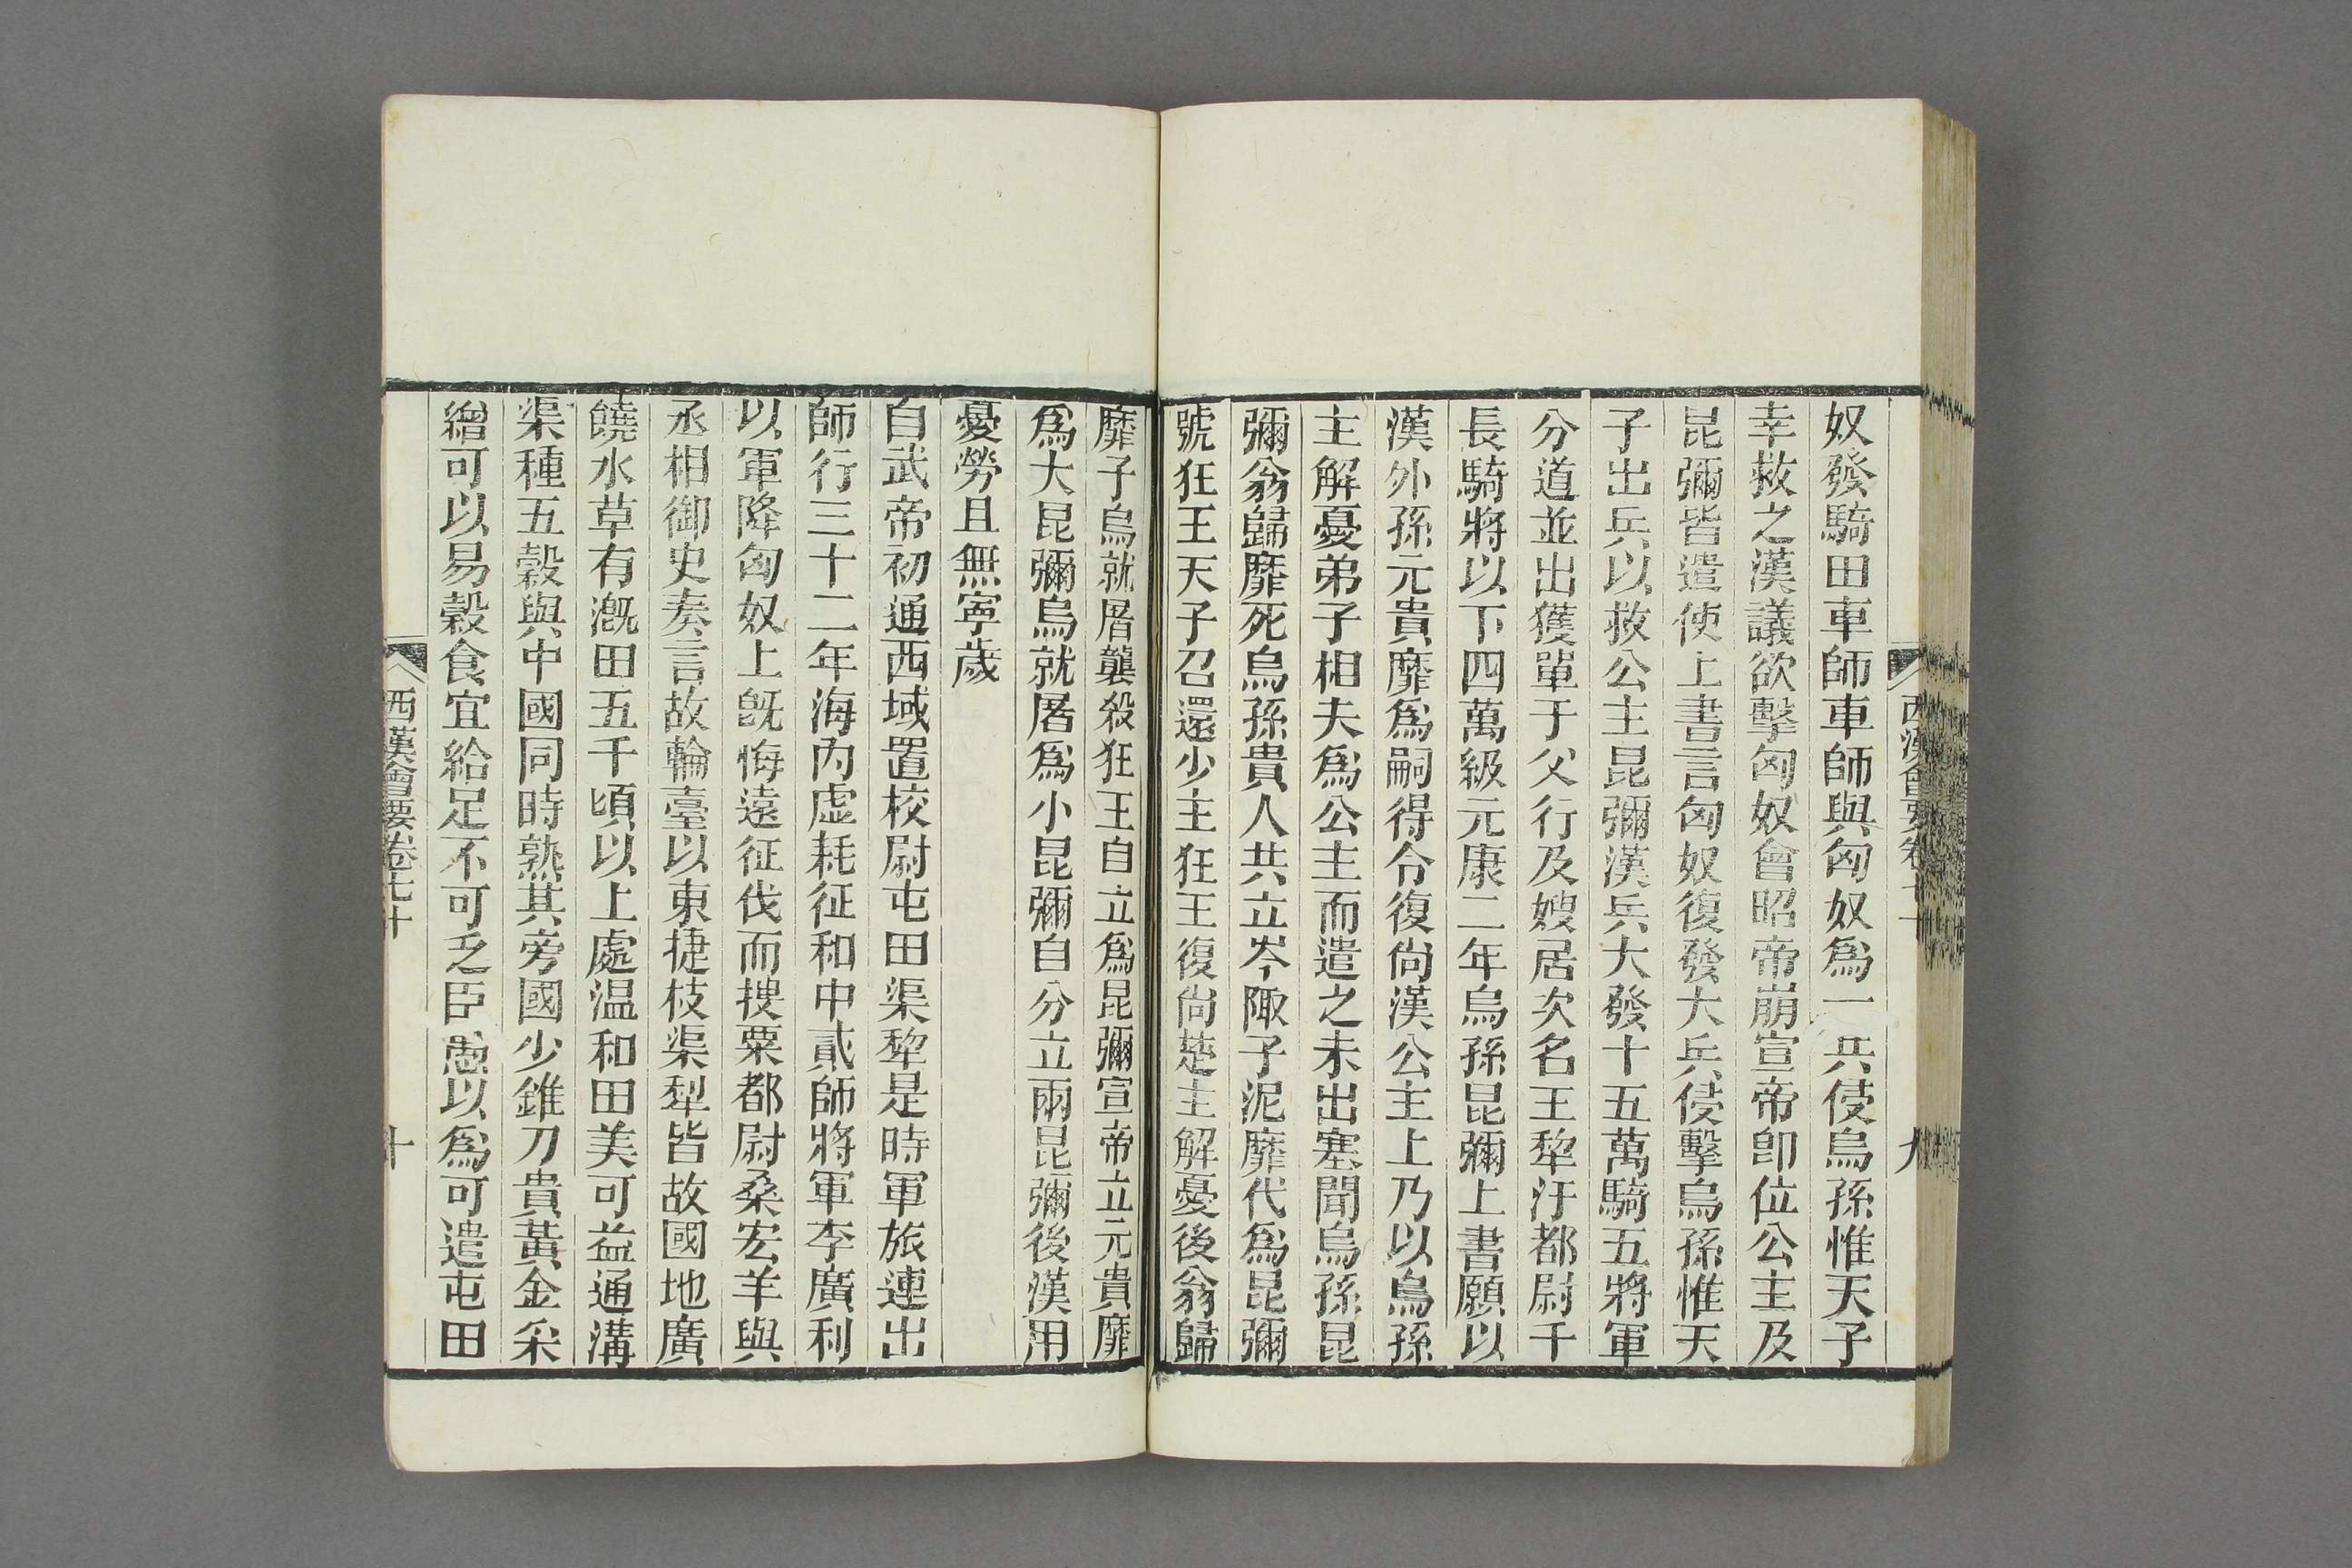 西漢會要卷七十
九
奴發騎田車師車師與匈奴爲一共侵烏孫惟天子
幸救之漢議欲擊匈奴會昭帝崩宣帝卽位公主及
昆彌皆遣使上書言匈奴復發大兵侵擊烏孫惟天
子出兵以救公主昆彌漢兵大發十五萬騎五將軍
分道並出獲單于父行及嫂居次名王犂汙都尉千
長騎將以下四萬級元康二年烏孫昆彌上書願以
漢外孫元貴靡爲嗣得令復尙漢公主上乃以烏孫
主解憂弟子相夫爲公主而遣之未出塞聞烏孫昆
彌翁歸靡死烏孫貴人共立岑陬子泥靡代爲昆彌
號狂王天子召還少主狂王復尙楚主解憂後翁歸
靡子烏就屠襲殺狂王自立爲昆彌宣帝立元貴靡
爲大昆彌烏就屠爲小昆彌自分立兩昆彌後漢用
憂勞且無寧歲
自武帝初通西域置校尉屯田渠犂是時軍旅連出
師行三十二年海內虛耗征和中貳師將軍李廣利
以軍降匈奴上旣悔遠征伐而搜粟都尉桑宏羊與
丞相御史奏言故輪臺以東捷枝渠犂皆故國地廣
饒水草有溉田五千頃以上處温和田美可益通溝
渠種五穀與中國同時熟其旁國少錐刀貴黃金采
繒可以易穀食宜給足不可乏臣愚以爲可遣屯田
西漢會要卷七十
十